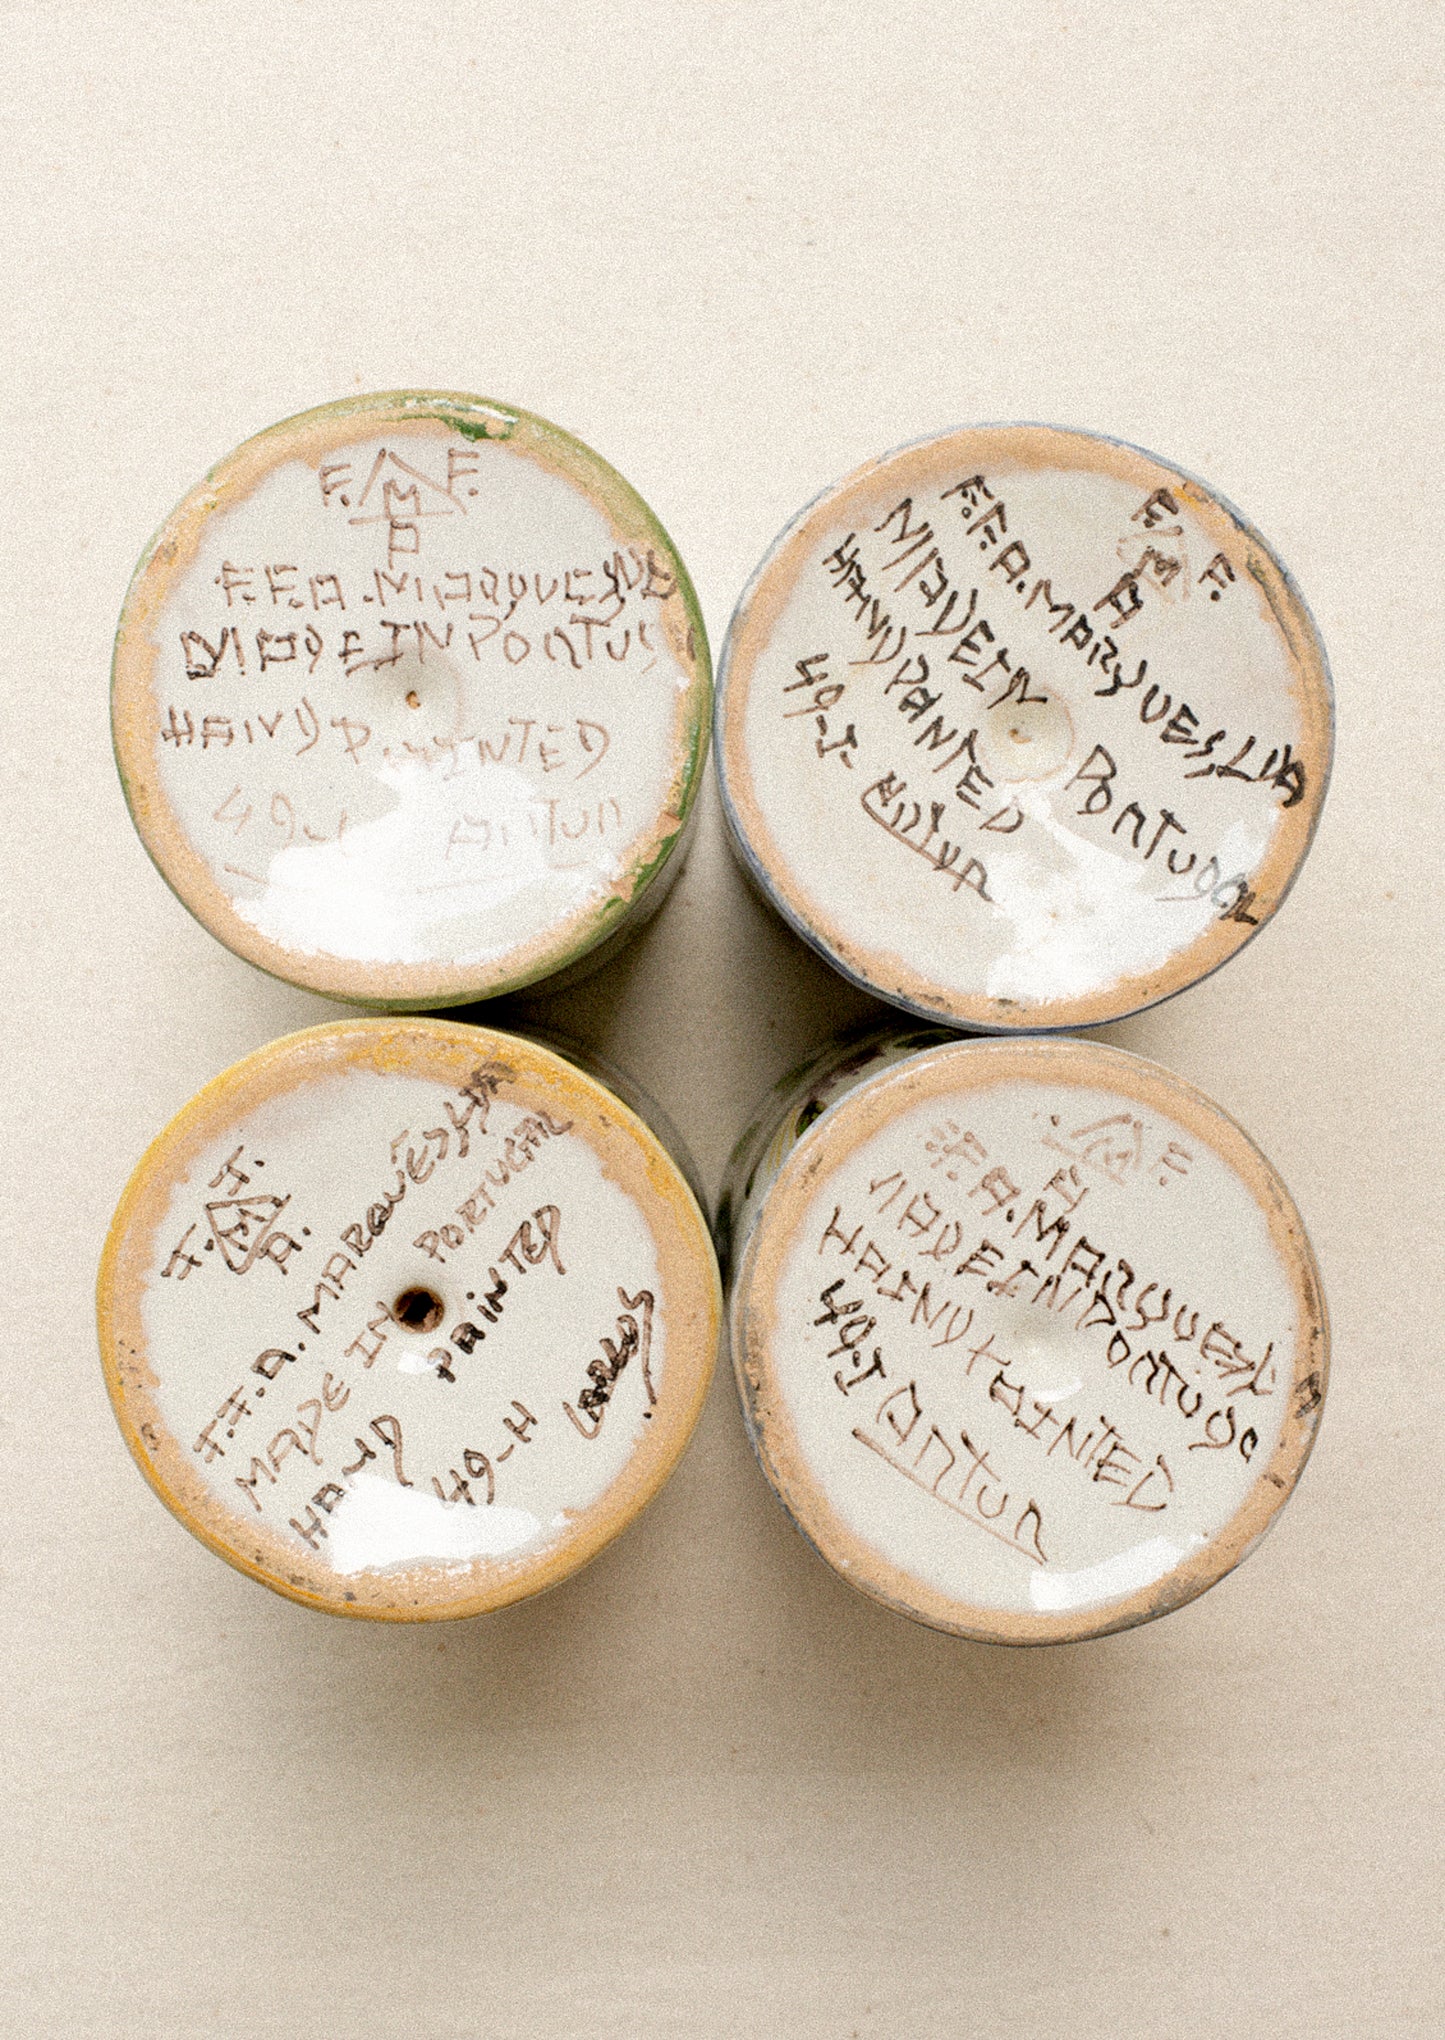 F. M F.
A
F.F.A. MARQUES, LDA
MADE IN PORTUG
HAND PAINTED
49 ANTUN
F. M F.
A
F.F.A. MARQUES, LDA
MADE IN PORTUGAL
HAND PAINTED
49-I. ANTUN
F. M F.
A.
F.F.A. MARQUES LDA
MADE IN PORTUGAL
HAND PAINTED
49-H
M F.
F.A. MARQUES, L
MADE IN PORTUGA
HAND PAINTED
49-I ANTUN